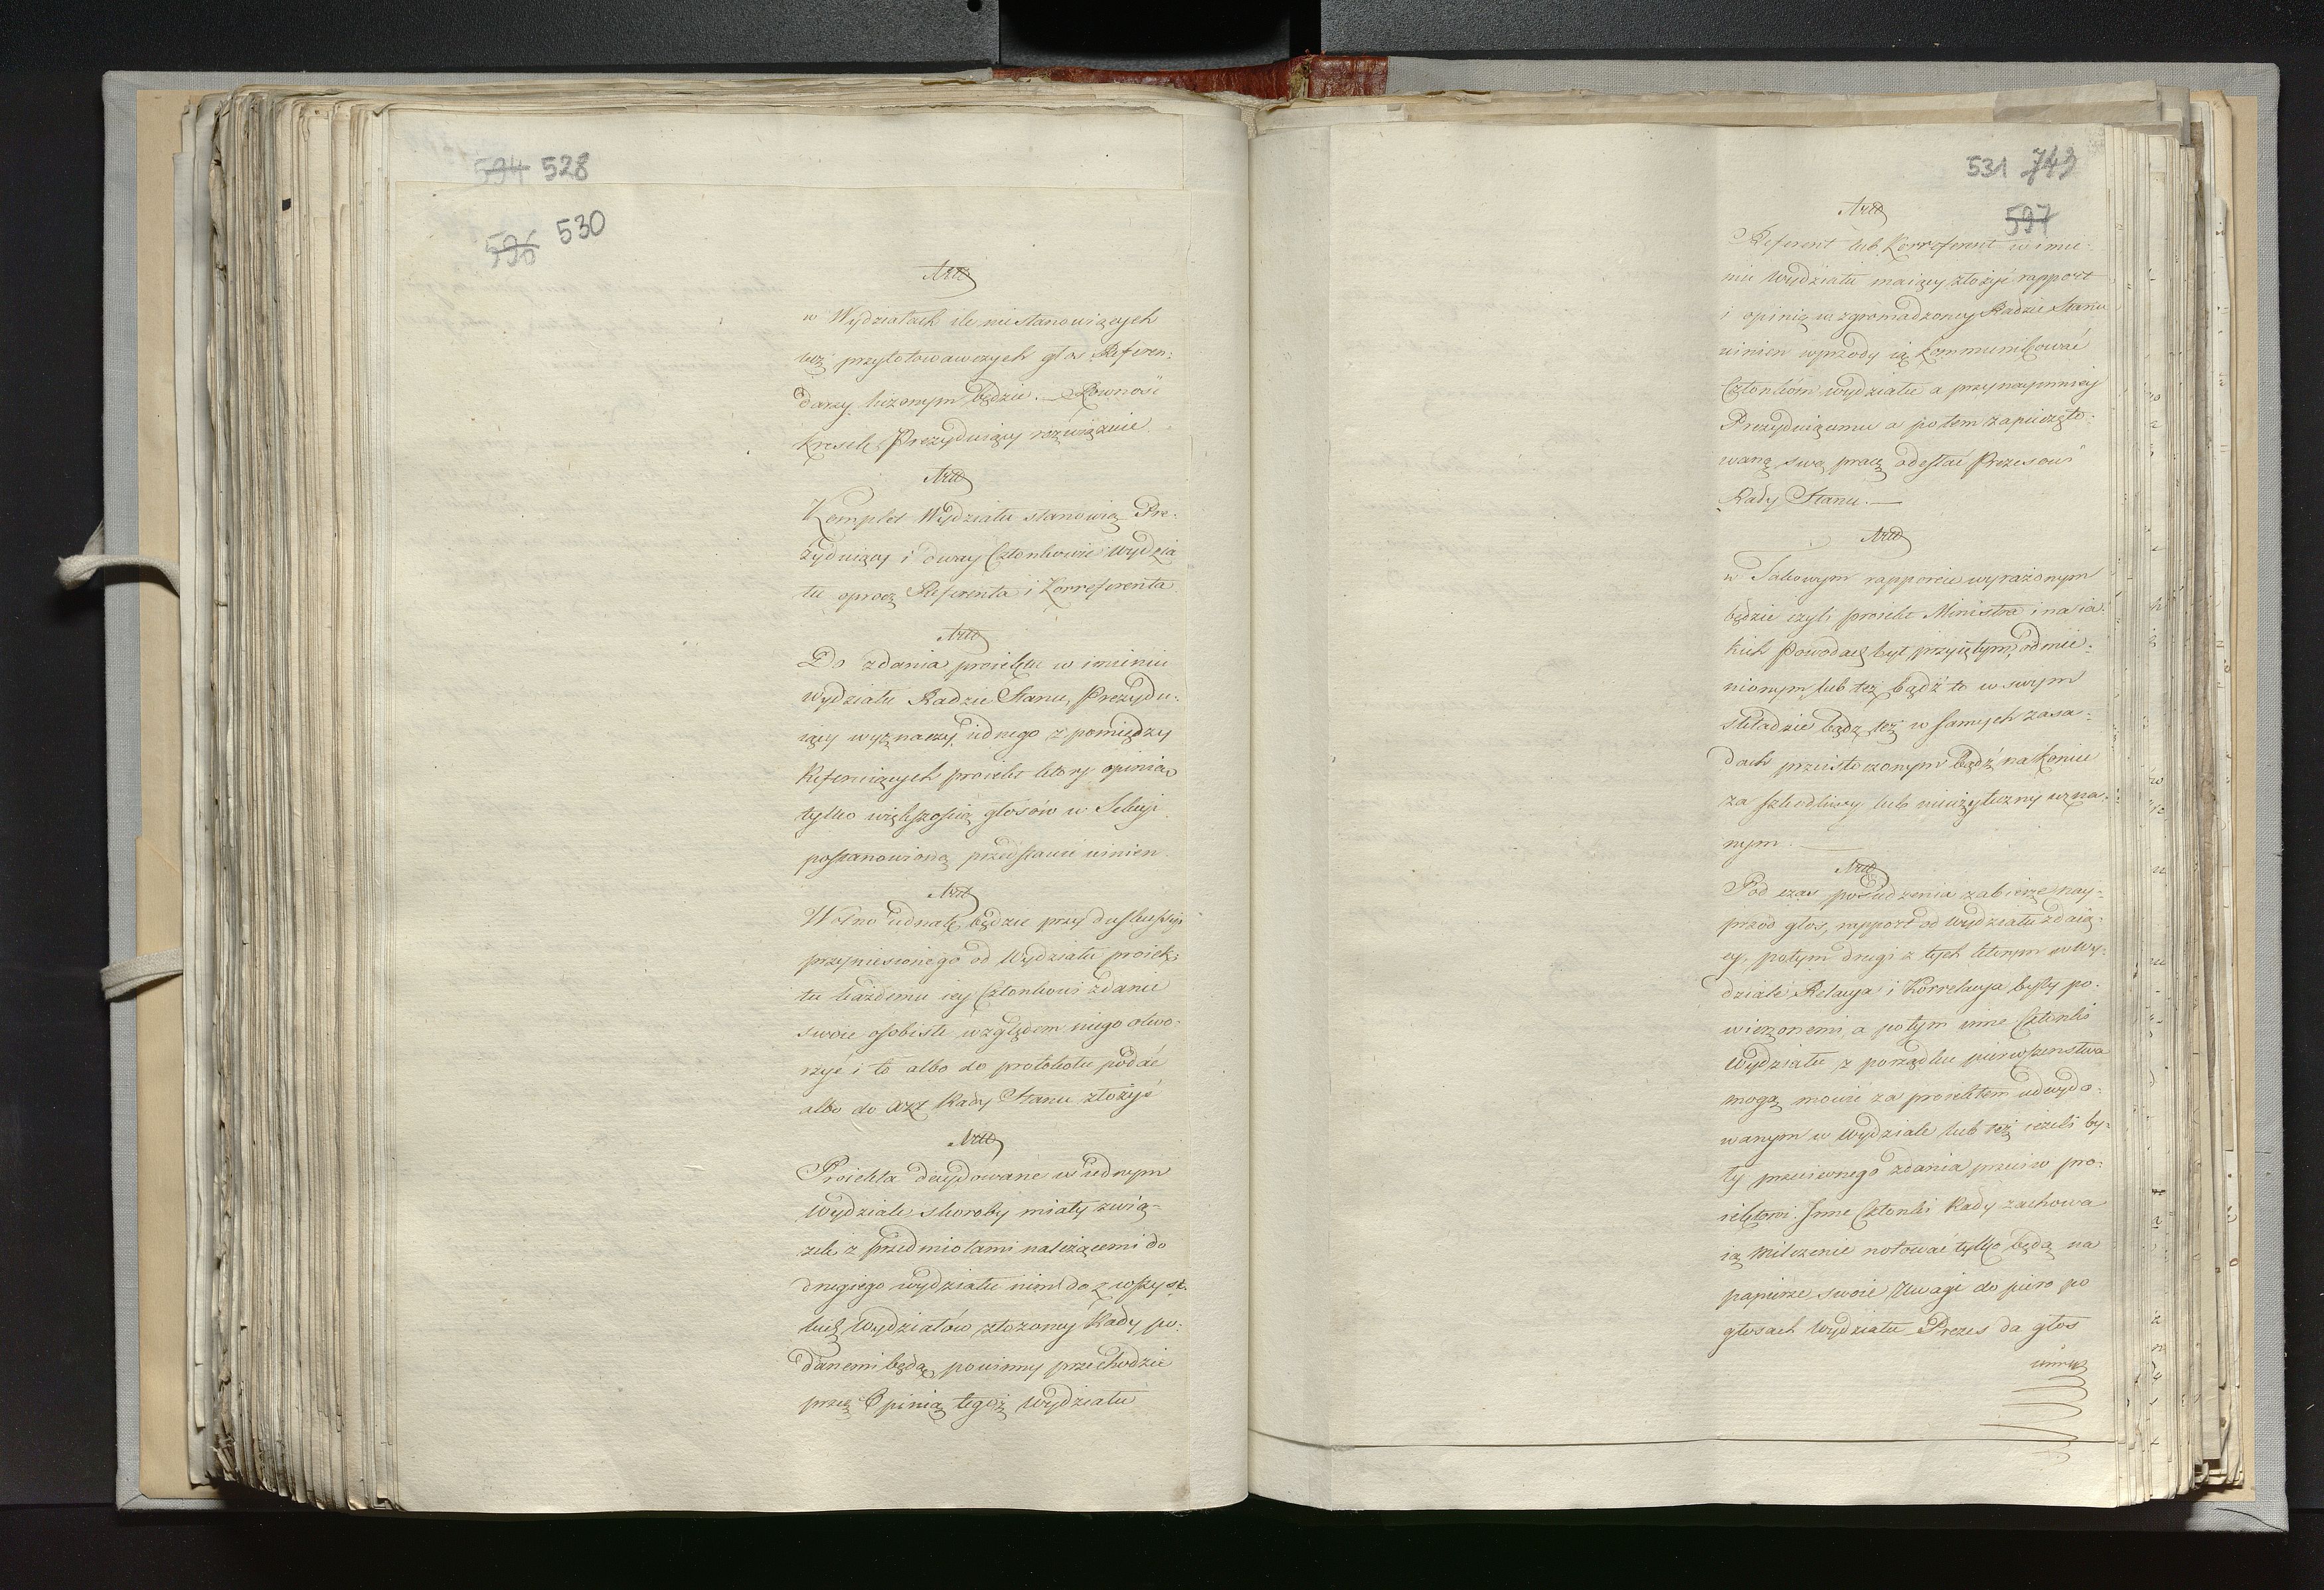 594 528
596 530
Artt
w Wydziałach ile nie stanowiących
lecz przygotowawczych głos Referen:
darzy liczonym będzie. — Rownosć
kresek Prezyduiący rozwiązuie.
Artt
Komplet Wydziału stanowią Pre-
zyduiący i dway Członkowie Wydzia
łu oprocz Referenta i Korreferenta
Artt
Do zdania proiektu w imieniu
Wydziału Radzie Stanu, Prezydu-
iący wyznaczy iednego z pomiędzy
Referuiących proiekt ktory opinią
tylko większością głosów w Sekcyi
postanowioną przedstawić winien.
Artt
Wolno iednak będzie przy duskussyi
przyniesionego od Wydziału proiek:
tu każdemu iey Członkowi zdanie
swoie osobiste względem niego otwo-
rzyć i to albo do protokołu podać
albo do Akt Rady Stanu złożyć
Artt
Proiekta decydowane w iednym
Wydziale skoroby miały zwią-
zek z przedmiotami należącemi do
drugiego wydziału nim do z wszyst-
kich Wydziałów złożoney Rady po-
danemi będą, powinny przechodzić
przez Opinią tegoż Wydziału
531 743
597
Artt
Referent lub Korreferent w imie-
niu Wydziału maiący złożyć rapport
i opinią w zgromadzoney Radzie Stanu
winien wprzody ią kommunikować
Członkom wydziału a przynaymniey
Prezyduiącemu a potem zapieczęto-
waną swą pracę odesłać Prezesowi
Rady Stanu. —
Artt
w Takowym rapporcie wyrażonym
będzie czyli proiekt Ministra i na ia-
kich Powodach był przyiętym, odmie-
nionym lub też bądź to w swym
składzie bądź też w samych zasa-
dach przeistoczonym bądź nakoniec
za szkodliwy lub nieużyteczny uzna-
nym. —
Artt
Pod czas posiedzenia zabierze nay-
przod głos, rapport od Wydziału zdaią-
cy, potym drugi z tych ktorym w Wy-
dziale Relacya i Korrelacya były po-
wierzonemi, a potym inne Członki
Wydziału z porządku pierwszenstwa
mogą mowić za proiektem udecydo-
wanym w Wydziale lub też ieżeli by-
ły przeciwnego zdania przeciw pro-
iektowi. Inne Członki Rady zachowa
ią milczenie notować tylko będą na
papierze swoie Uwagi do piero po
głosach Wydziału Prezes da głos